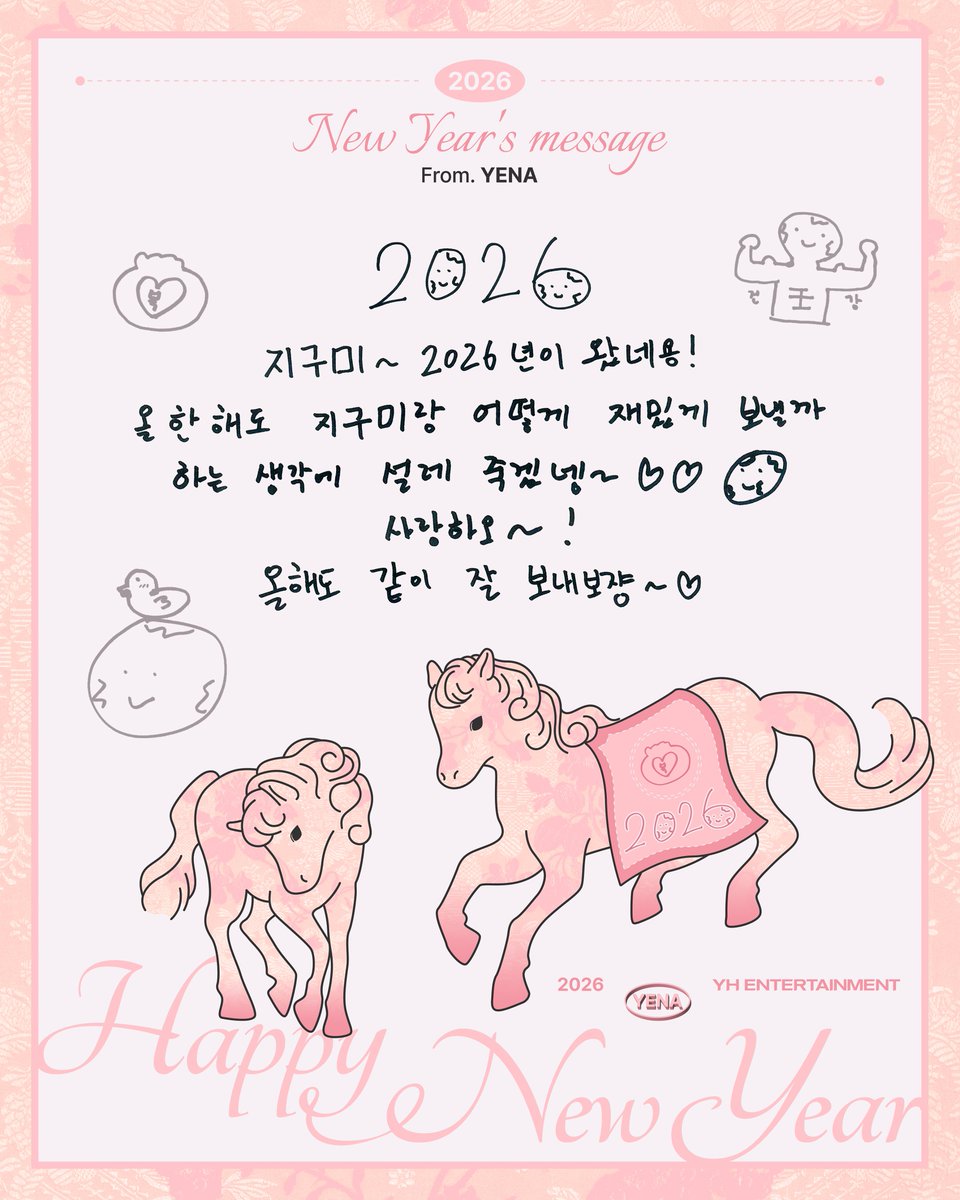 2026
New Year's message
From. YENA
2026
지구미~ 2026년이 왔네용!
올 한 해도 지구미랑 어떻게 재밌게 보낼까
하는 생각에 설레 죽겠넹~ ♡♡
사랑하오~!
올해도 같이 잘 보내보쟝~♡
건 강
2026
2026 YENA YH ENTERTAINMENT
Happy New Year